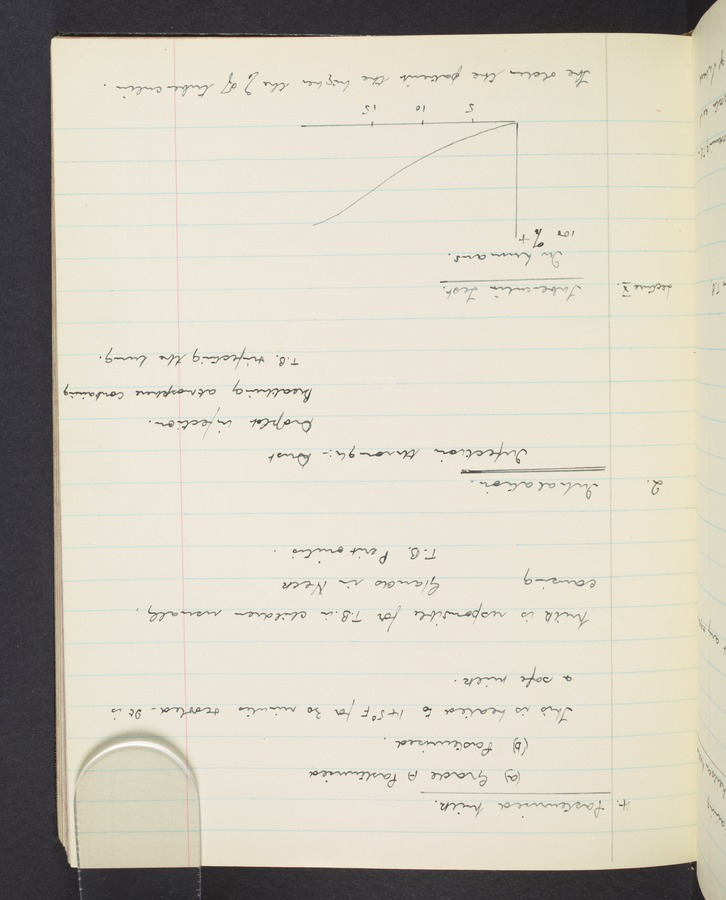 4. Pasteurised Milk.
(a) Grade A Pasteurised
(b) Pasteurised.
This is heated to 145°F for 30 minutes & cooled - It is
a safe milk.
Milk is responsible for T.B. in children usually,
causing Glands in Neck
T.B. Peritonitis.
2. Inhalation.
Infection through:- Dust
Droplet infection.
Breathing atmosphere containing
T.B. infecting the lung.
Lecture X. Tuberculin Test.
In humans.
100 % +
5 10 15
The older the patient the higher the % of tuberculin.